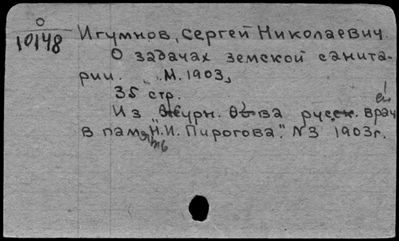 О
10148
Игумнов, Сергей Николаевич.
О задачах земской санита-
рии. М. 1903,
35 стр.
Из "Журн. Об-ва русск. врачей
в память Н.И. Пирогова". N3 1903г.